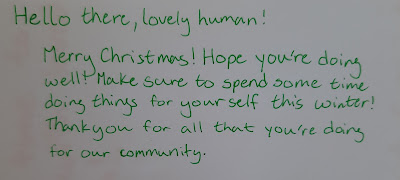 Hello there, lovely human!
Merry Christmas! Hope you're doing
well! Make sure to spend some time
doing things for yourself this winter!
Thankyou for all that you're doing
for our community.